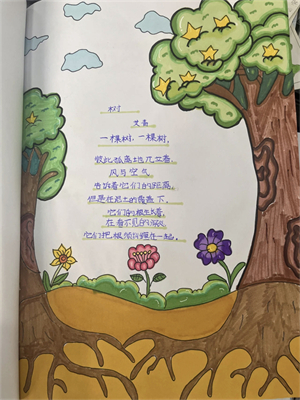 树
艾青
一棵树，一棵树，
彼此孤离地兀立着，
风与空气，
告诉着它们的距离。
但是在泥土的覆盖下，
它们的根生长着，
在看不见的深处，
它们把根须纠缠在一起。